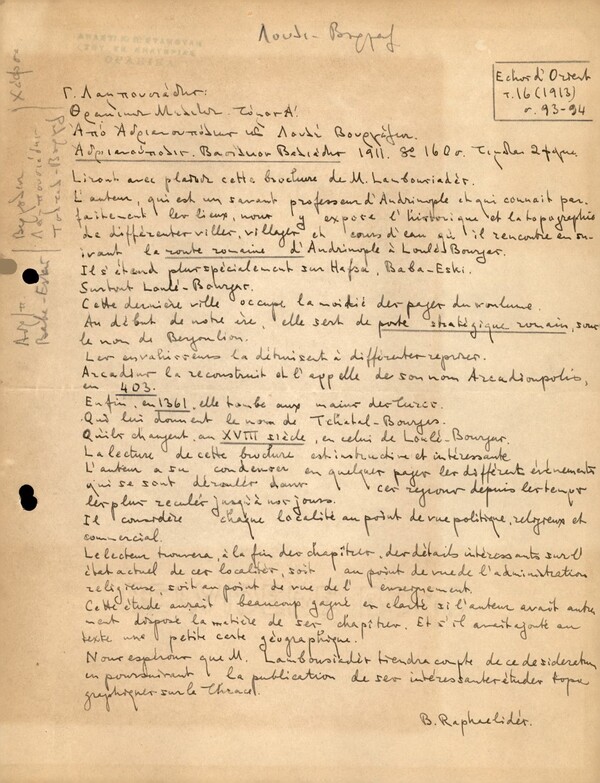 Λουλέ-Βουργάζ
Echos d'Orient
τ. 16 (1913)
σ. 93-94
Γ. Λαμπουσιάδης:
Θρακικαὶ Μελέται. Τόμος Α΄.
Ἀπὸ Ἀδριανουπόλεως εἰς Λουλὲ Βουργάζιον.
Ἀδριανούπολις. 1911. 8° 160 σ.
Liront avec plaisir cette brochure de M. Lambousiadès.
L'auteur, qui est un savant professeur d'Andrinople et qui connait par-
faitement les lieux, nous y expose l'historique et la topographie
de différentes villes, villages et cours d'eau qu'il rencontre en sui-
vant la route romaine d'Andrinople à Loulé-Bourgas.
Ils s'étend plus spécialement sur Hafsa, Baba-Eski.
Surtout Loulé-Bourgas.
Cette dernière ville occupe la moitié des pages du volume.
Au début de notre ère, elle sert de poste stratégique romain, sous
le nom de Bergoulion.
Les envahisseurs la détruisent à différentes reprises.
Arcadius la reconstruit et l'appelle de son nom Arcadioupolis,
en 403.
Enfin, en 1361, elle tombe aux mains des turcs.
Qui lui donnent le nom de Tchatal-Bourgas.
Qu'ils changent, au XVIII siècle, en celui de Loulé-Bourgas.
La lecture de cette brochure est instructive et intéressante
L'auteur a su condenser en quelques pages les différents évènements
qui se sont déroulés dans ces régions depuis les temps
les plus reculés jusqu'à nos jours.
Il considère chaque localité au point de vue politique, religieux et
commercial.
Le lecteur trouvera, à la fin des chapitres, des détails intéressants sur l'
état actuel de ces localités, soit au point de vue de l'administration
religieuse, soit au point de vue de l' enseignement.
Cette étude aurait beaucoup gagné en clarté si l'auteur avait autre-
ment disposé la matière de ses chapitres. Et s'il avait ajouté au
texte une petite carte géographique.
Nous espérons que M. Lambousiadès tiendra compte de ce desideratum
en poursuivant la publication de ses intéressantes études topo
graphiques sur le Thrace.
B. Raphaelidès.
Baba-Eski